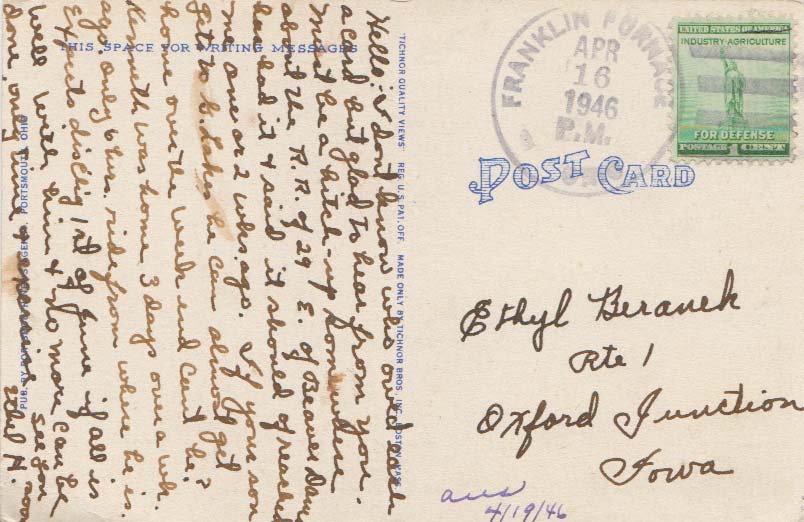 THIS SPACE FOR WRITING MESSAGES
Hello: I don't know who owed each
a card but glad to hear from you.
Must be a hitch-up somewhere
about the R.R. of 29 E. of Beaver Dam
has had it & said it should of reached
me one or 2 wks ago. If your son
get to G. Lakes he can almost get
home over the week end can't he?
Kenneth was home 3 days over a wk.
ago. Only 6 hrs. ride from where he is.
Expects dischg 1st of June if all is
well with him & no more can be
done, only time & exercise. See you soon
Ethel H.
PUB. BY PORTSMOUTH NEWS AGENCY, PORTSMOUTH, OHIO
"TICHNOR QUALITY VIEWS" REG. U.S. PAT. OFF. MADE ONLY BY TICHNOR BROS., INC., BOSTON, MASS.
FRANKLIN FURNACE
APR
16
1946
P.M.
UNITED STATES OF AMERICA
INDUSTRY-AGRICULTURE
FOR DEFENSE
POSTAGE 1 CENT
POST CARD
Ethyl Beranek
Rte 1
Oxford Junction
Iowa
ans
4/19/46